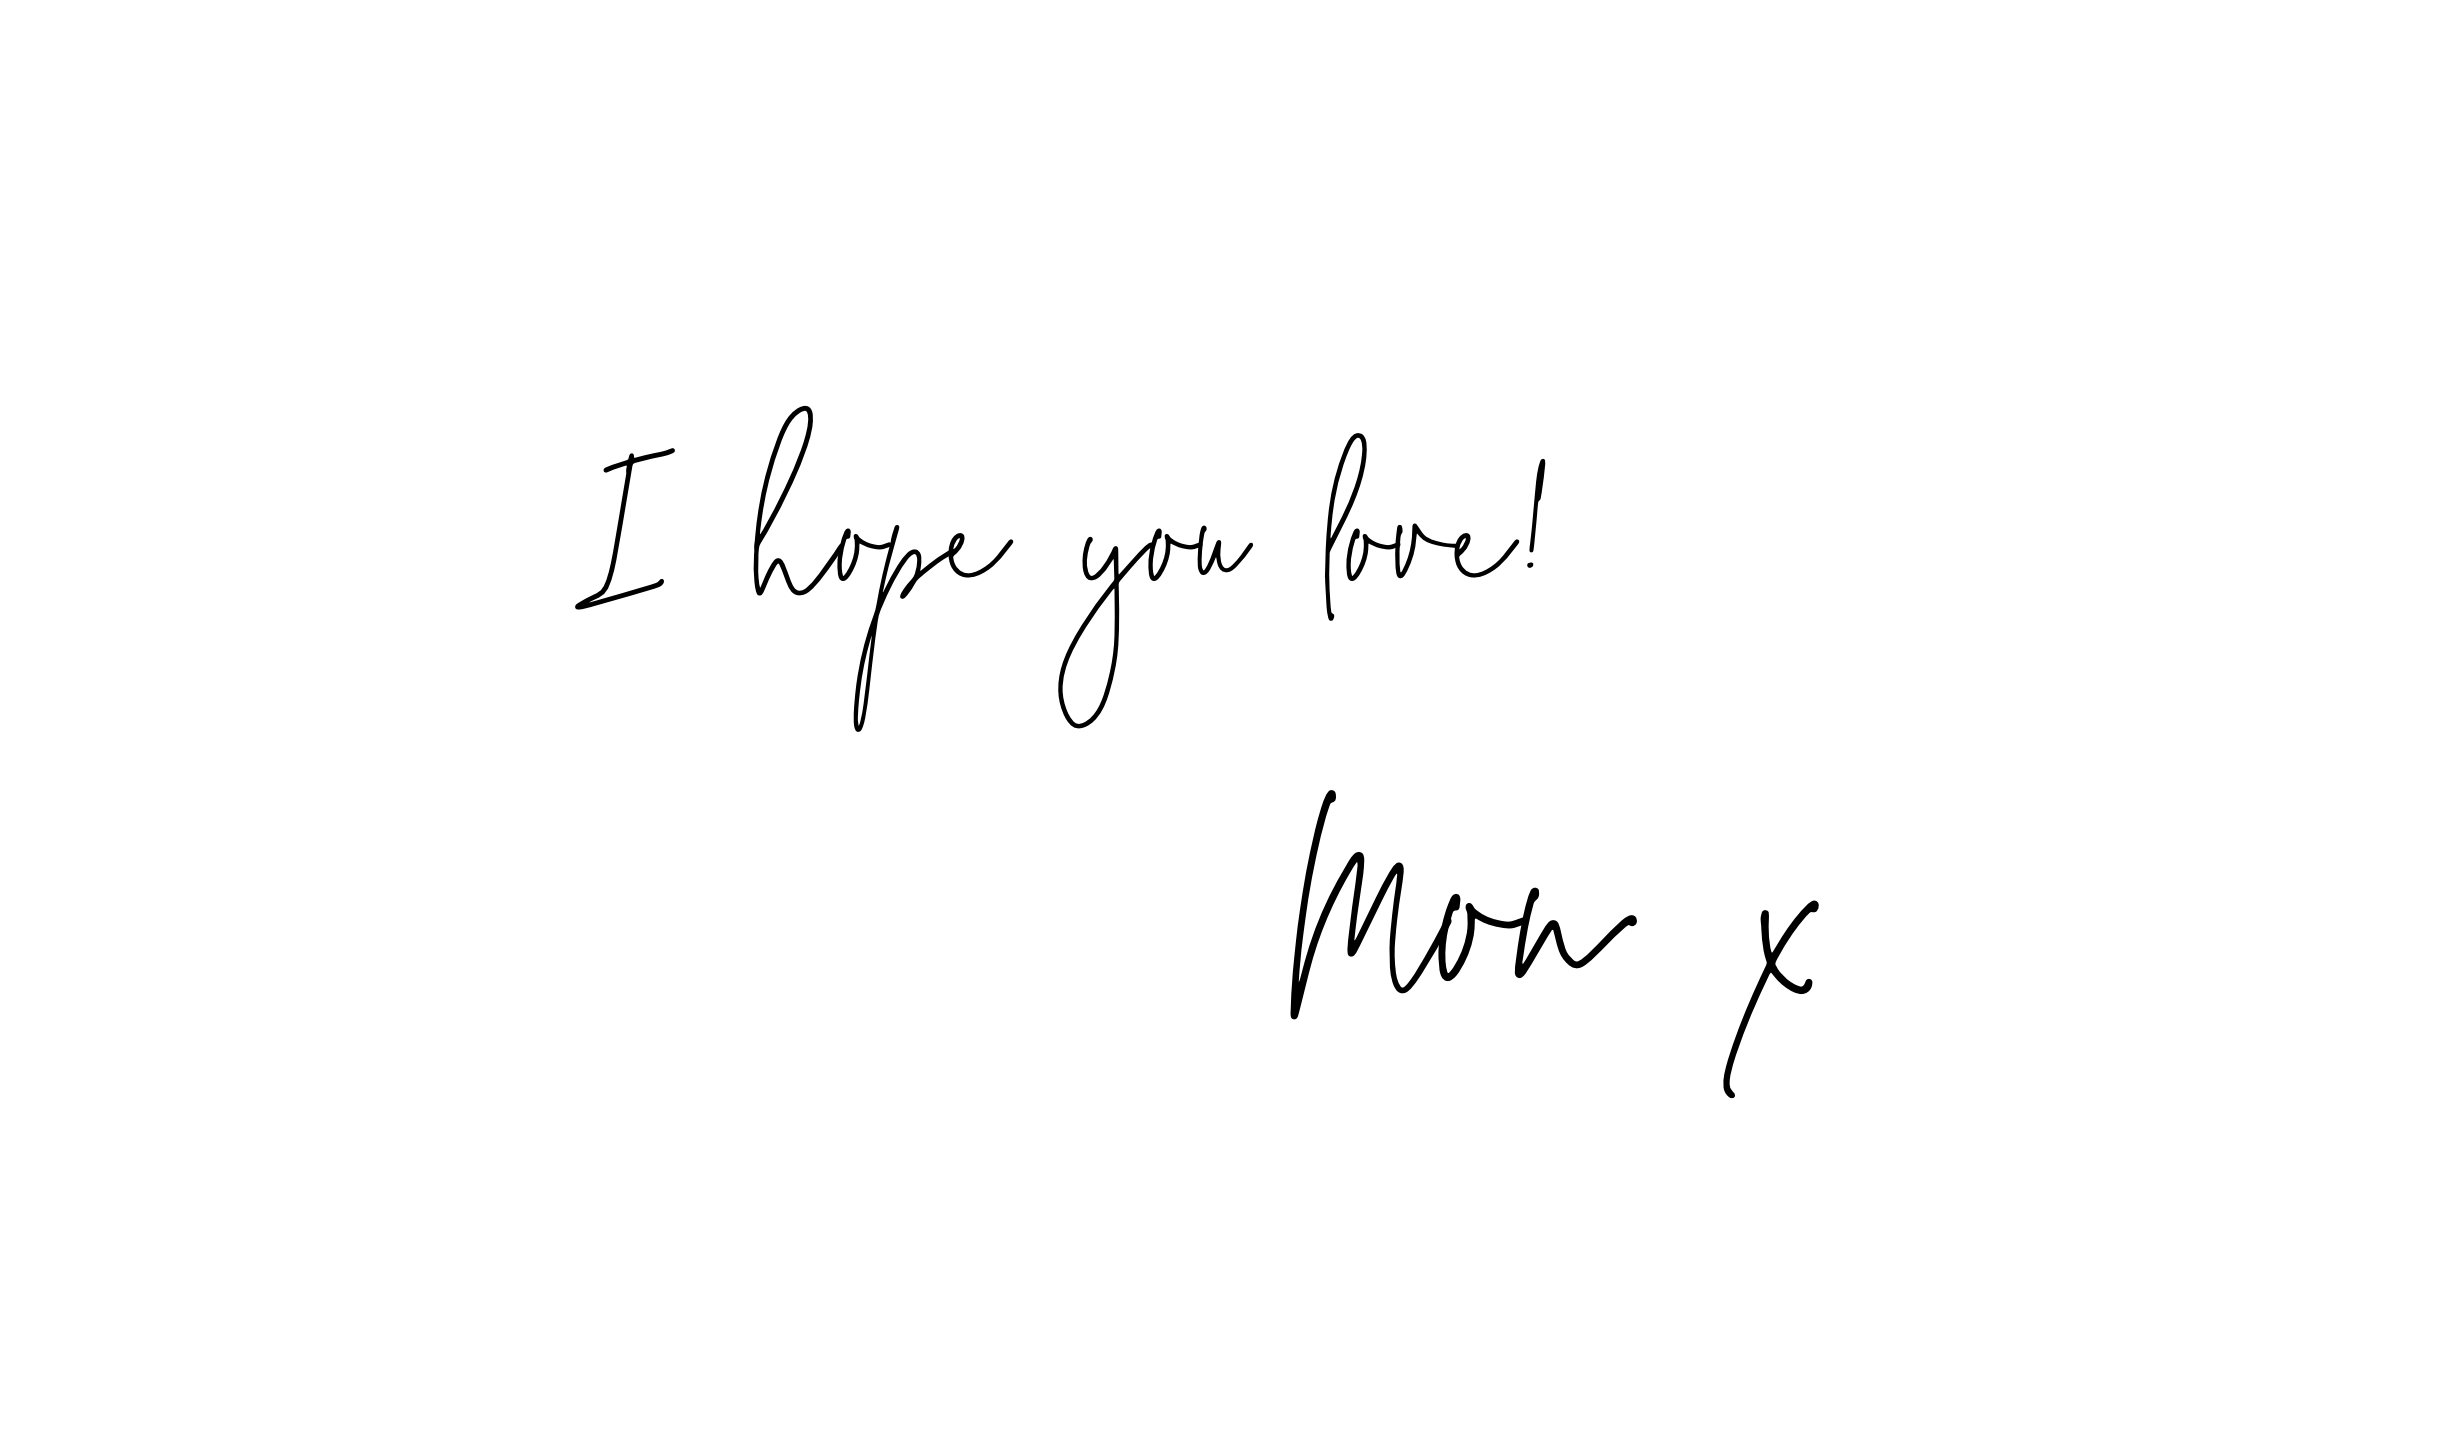 I hope you love!
Mon x